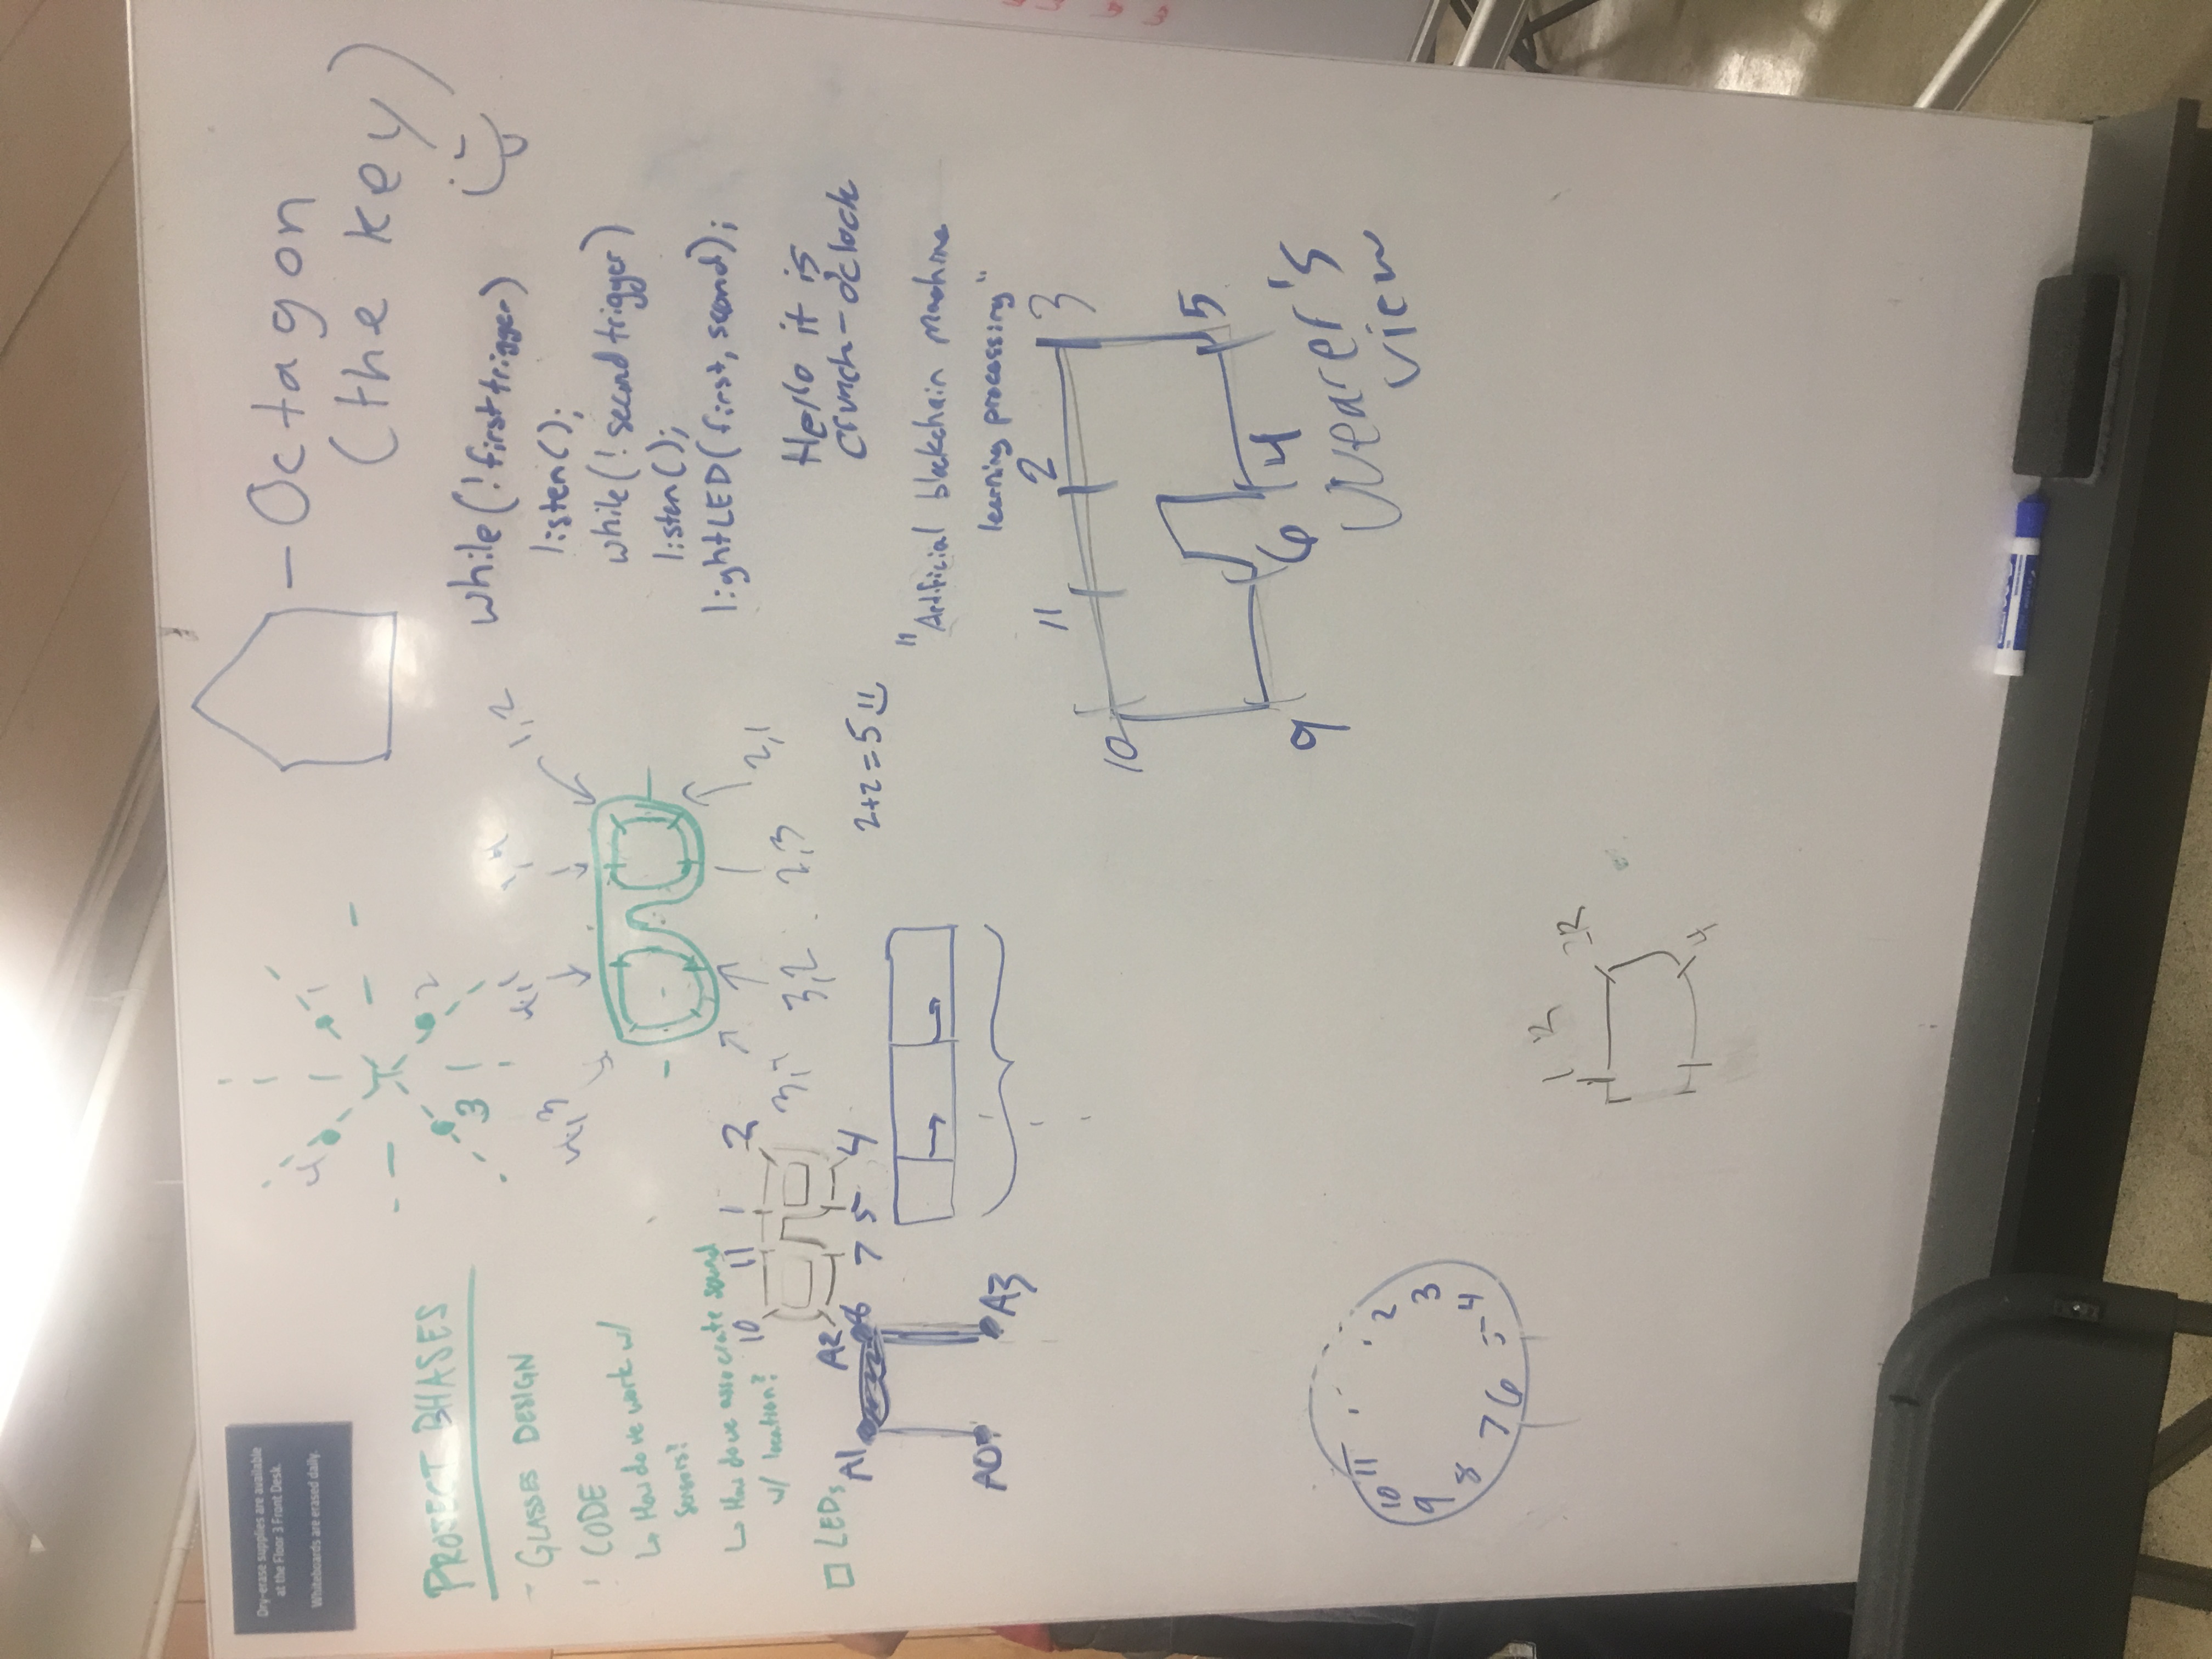 Dry-erase supplies are available
at the Floor 3 Front Desk.
Whiteboards are erased daily.
PROJECT PHASES
- GLASSES DESIGN
- CODE
↳ How do we work w/
sensors?
↳ How do we associate sound
w/ location?
□ LEDs
1
2
3
4
1,2
2,1
2,3
3,2
4,3
4,1
10 11 1 2
6 7 5 4
A1 A2
A0 A3
2+2=5
- Octagon
(the key)
while(!first trigger)
listen();
while(!second trigger)
listen();
lightLED(first, second);
Hello it is
crunch-oclock
"Artificial blockchain machine
learning processing"
10 11 2 3
9 6 4 5
wearer's
view
11 10 9 8 7 6 5 4 3 2
1 2
4